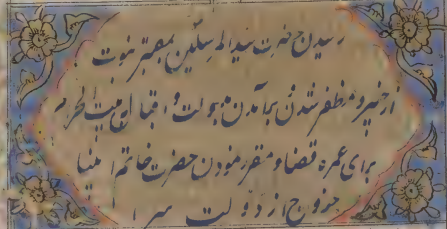 رسیدن حضرت سید المرسلین بمقبر نبوت
از خیبر و مظفر شدن برآمدن بدولت و اقبال بیت الحرام
برای عمره قضا و مقرر نمودن حضرت خاتم انبیا
خروج از دولت سرا